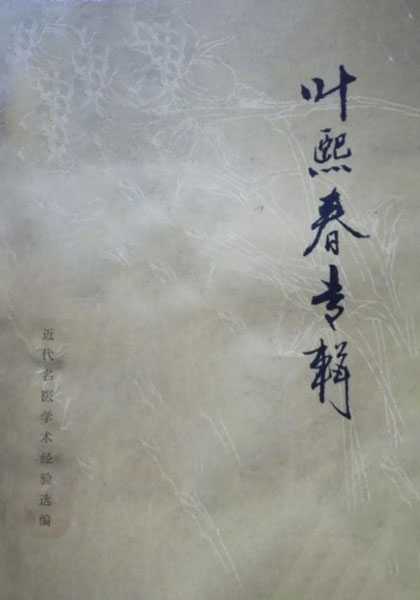 叶熙春专辑
近代名医学术经验选编